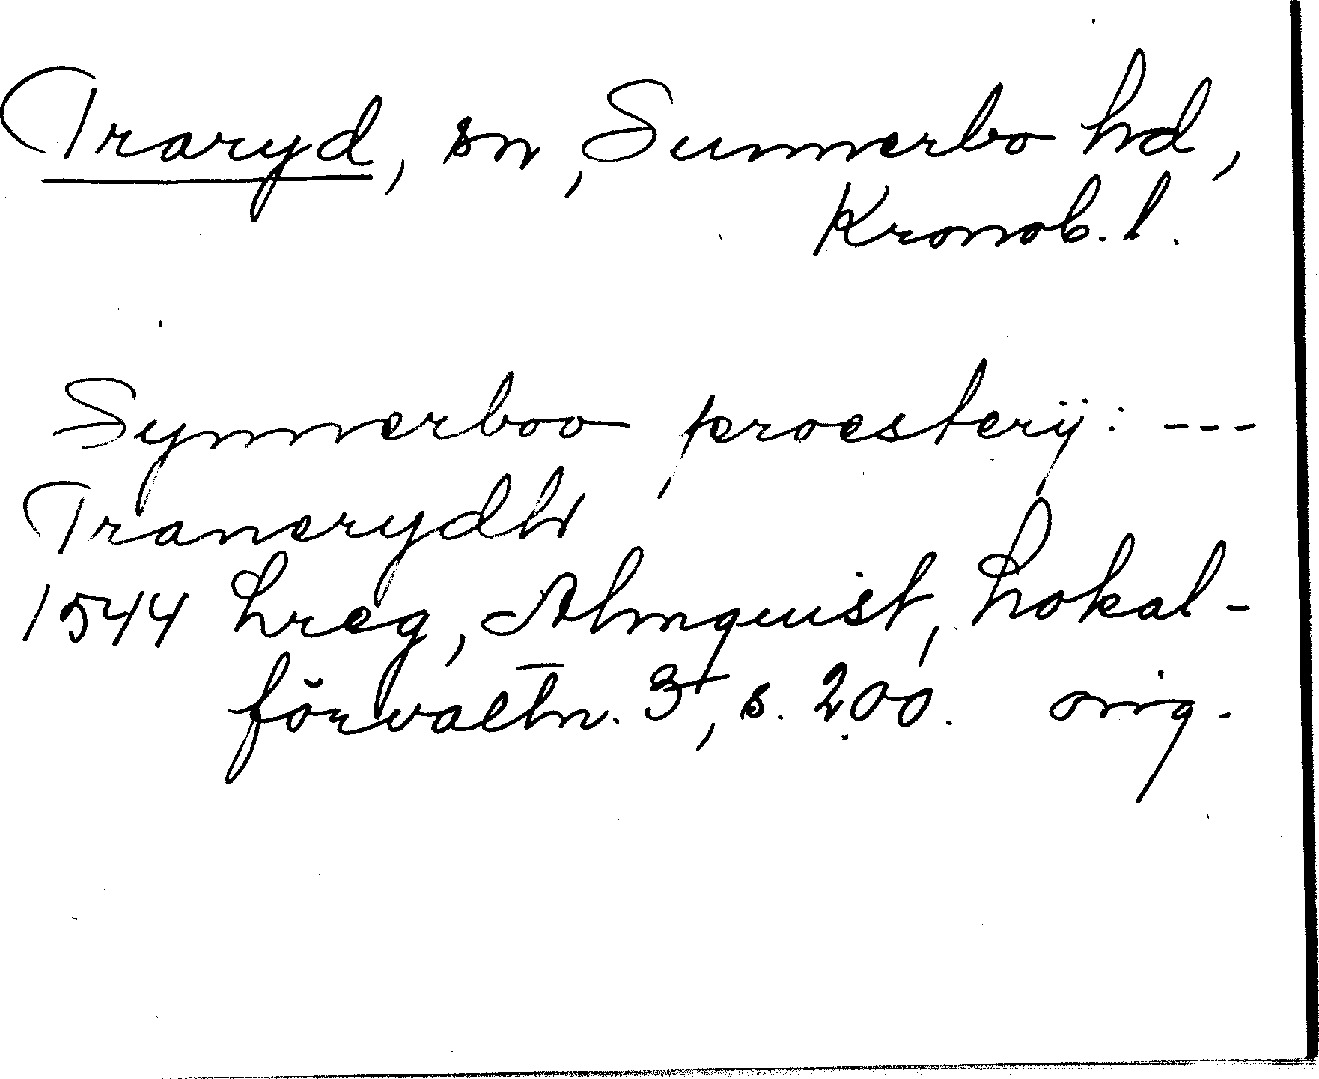 Traryd, sn, Sunnerbo hd,
Kronob. l.
Synnerboo proesterij: ---
Tranerydh
1544 Lreg, Almquist, Lokal-
förvaltn. 3, s. 200. orig.